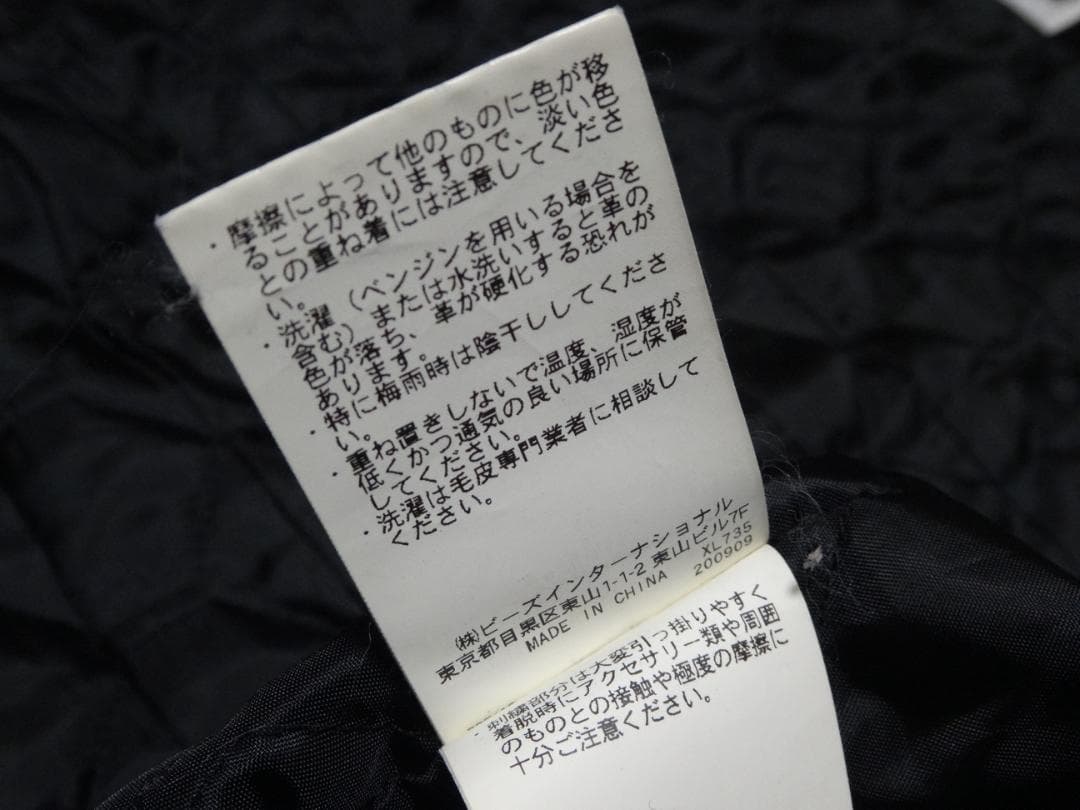 ・摩擦によって他のものに色が移
ることがありますので、淡い色
との重ね着には注意してくださ
い。
・洗濯（ベンジンを用いる場合を
含む）または水洗いすると革の
色が落ち、革が硬化する恐れが
あります。
・特に梅雨時は陰干ししてくださ
い。
・重ね置きしないで温度、湿度が
低くかつ通気の良い場所に保管
してください。
・洗濯は毛皮専門業者に相談して
ください。
㈱ビーズインターナショナル
東京都目黒区東山1-1-2 東山ビル7F
MADE IN CHINA XL735
200909
・刺繍部分は大変引っ掛りやすく
着脱時にアクセサリー類や周囲
のものとの接触や極度の摩擦に
十分ご注意ください。